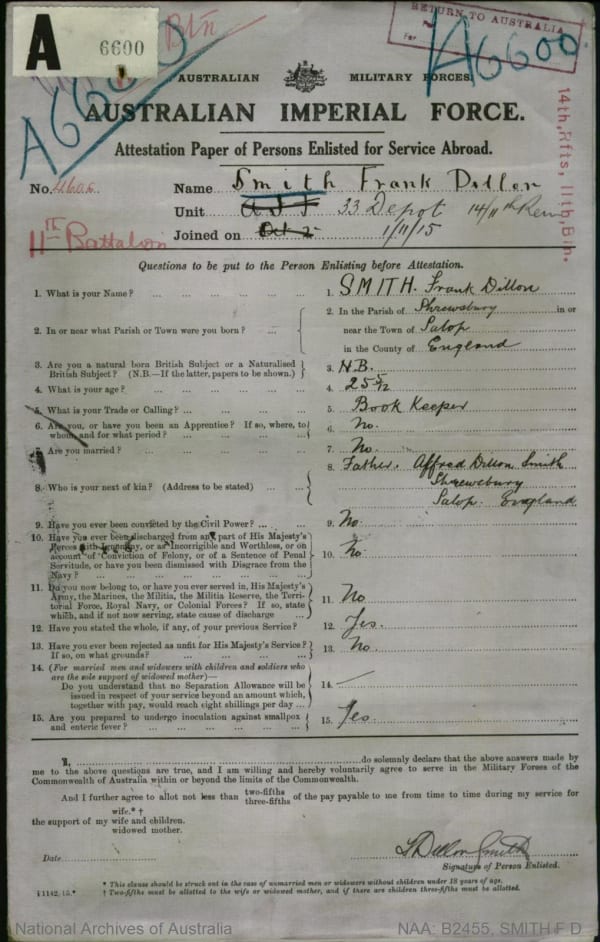 A 6600
Btn
RETURN TO AUSTRALIA
For
A6600
A6600
AUSTRALIAN MILITARY FORCES.
AUSTRALIAN IMPERIAL FORCE.
Attestation Paper of Persons Enlisted for Service Abroad.
14th, Rfts, 11th, Btn.
No. Name Smith Frank Dillon
Unit 33 Depot
11th Battalion
Joined on 1/11/15
Questions to be put to the Person Enlisting before Attestation.
1. What is your Name? ... 1. SMITH. Frank Dillon
2. In or near what Parish or Town were you born? ... 2. In the Parish of Shrewsbury in or
near the Town of Salop
in the County of England
3. Are you a natural born British Subject or a Naturalised
British Subject? (N.B.—If the latter, papers to be shown.) 3. N.B.
4. What is your age? ... 4. 25 5/12
5. What is your Trade or Calling? ... 5. Book Keeper
6. Are you, or have you been an Apprentice? If so, where, to
whom, and for what period? ... 6. No.
7. Are you married? ... 7. No.
8. Who is your next of kin? (Address to be stated) ... 8. Father. Alfred Dillon Smith
Shrewsbury
Salop. England
9. Have you ever been convicted by the Civil Power? ... 9. No.
10. Have you ever been discharged from any part of His Majesty's
Forces with Ignominy, or as Incorrigible and Worthless, or on
account of Conviction of Felony, or of a Sentence of Penal
Servitude, or have you been dismissed with Disgrace from the
Navy? ... 10. No.
11. Do you now belong to, or have you ever served in, His Majesty's
Army, the Marines, the Militia, the Militia Reserve, the Terri-
torial Force, Royal Navy, or Colonial Forces? If so, state
which, and if not now serving, state cause of discharge 11. No
12. Have you stated the whole, if any, of your previous Service? 12. Yes.
13. Have you ever been rejected as unfit for His Majesty's Service?
If so, on what grounds? ... 13. No.
14. (For married men and widowers with children and soldiers who
are the sole support of widowed mother)—
Do you understand that no Separation Allowance will be
issued in respect of your service beyond an amount which,
together with pay, would reach eight shillings per day ... 14. —
15. Are you prepared to undergo inoculation against smallpox
and enteric fever? ... 15. Yes.
I, ... do solemnly declare that the above answers made by
me to the above questions are true, and I am willing and hereby voluntarily agree to serve in the Military Forces of the
Commonwealth of Australia within or beyond the limits of the Commonwealth.
And I further agree to allot not less than two-fifths three-fifths of the pay payable to me from time to time during my service for
wife.* †
the support of my wife and children.
widowed mother.
Date
F Dillon Smith
Signature of Person Enlisted.
* This clause should be struck out in the case of unmarried men or widowers without children under 18 years of age.
† Two-fifths must be allotted to the wife or widowed mother, and if there are children three-fifths must be allotted.
National Archives of Australia NAA: B2455, SMITH F D